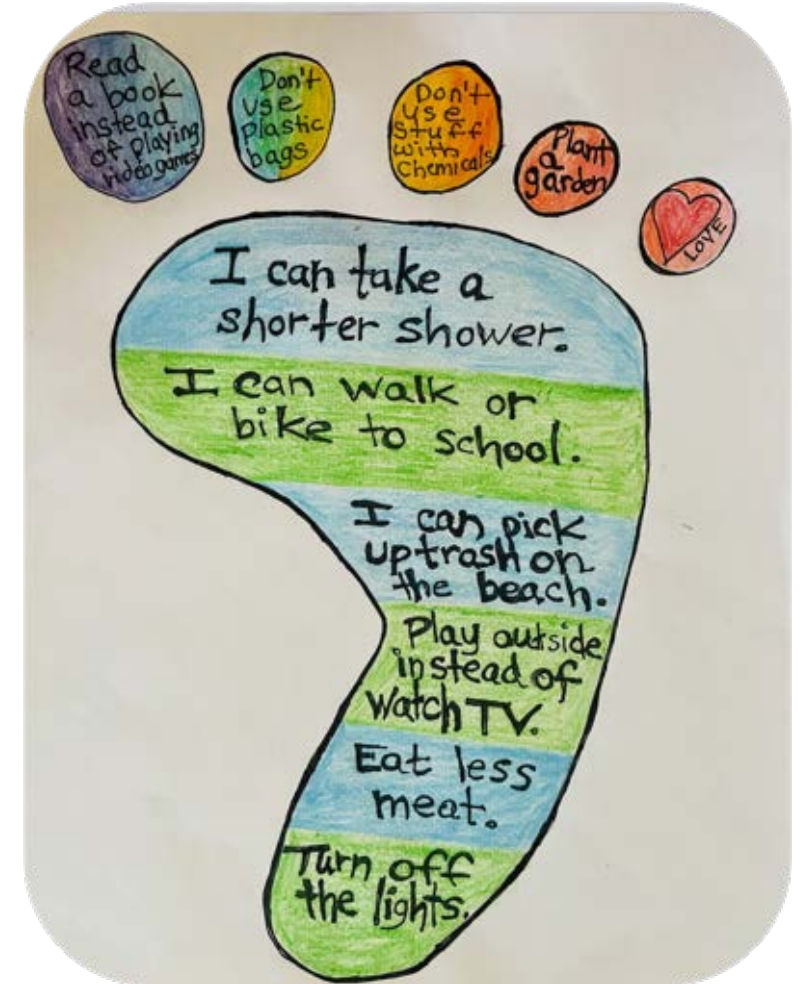 Read
a book
instead
of playing
video games
Don't
use
plastic
bags
Don't
use
stuff
with
chemicals
Plant
a
garden
LOVE
I can take a
shorter shower.
I can walk or
bike to school.
I can pick
up trash on
the beach.
Play outside
instead of
watch TV.
Eat less
meat.
Turn off
the lights.